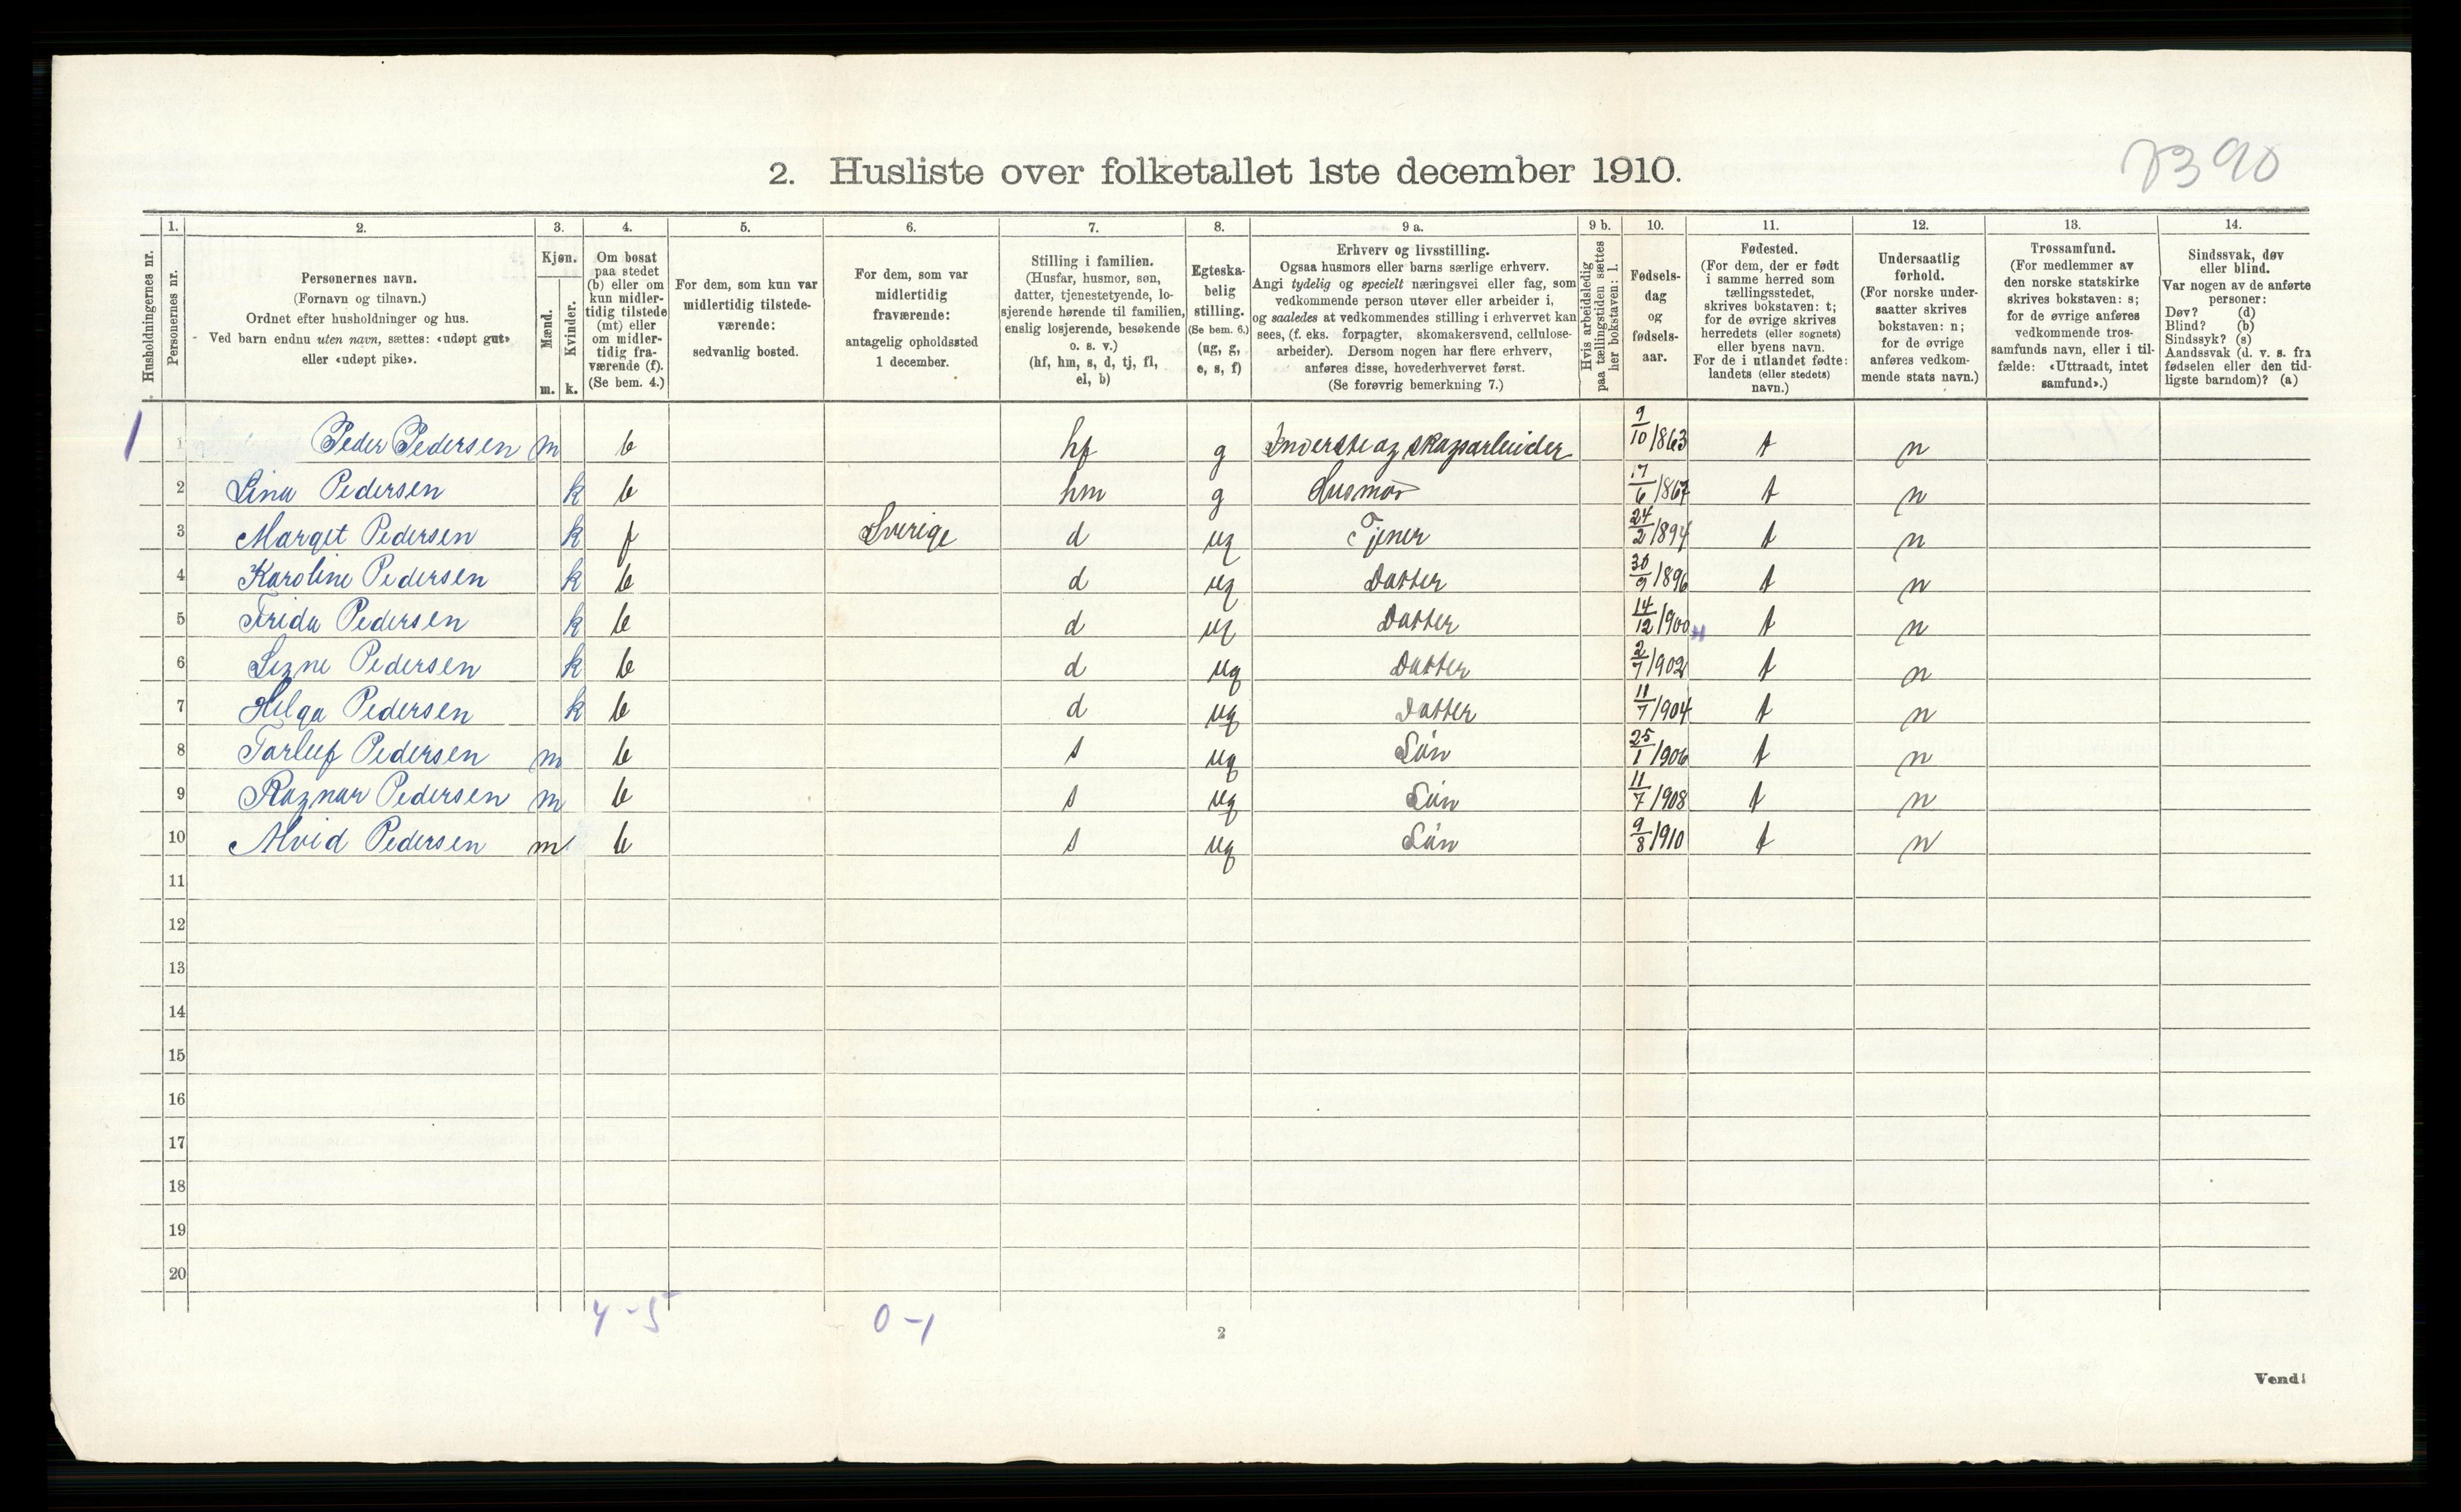 7390
2. Husliste over folketallet 1ste december 1910.
Husholdningernes nr.
1. Personernes nr.
2. Personernes navn.
(Fornavn og tilnavn.)
Ordnet efter husholdninger og hus.
Ved barn endnu uten navn, sættes: «udøpt gut»
eller «udøpt pike».
3. Kjøn.
Mænd. m.
Kvinder. k.
4. Om bosat
paa stedet
(b) eller om
kun midler-
tidig tilstede
(mt) eller
om midler-
tidig fra-
værende (f).
(Se bem. 4.)
5. For dem, som kun var
midlertidig tilstede-
værende:
sedvanlig bosted.
6. For dem, som var
midlertidig
fraværende:
antagelig opholdssted
1 december.
7. Stilling i familien.
(Husfar, husmor, søn,
datter, tjenestetyende, lo-
sjerende hørende til familien,
enslig losjerende, besøkende
o. s. v.)
(hf, hm, s, d, tj, fl,
el, b)
8. Egteska-
belig
stilling.
(Se bem. 6.)
(ug, g,
e, s, f)
9 a. Erhverv og livsstilling.
Ogsaa husmors eller barns særlige erhverv.
Angi tydelig og specielt næringsvei eller fag, som
vedkommende person utøver eller arbeider i,
og saaledes at vedkommendes stilling i erhvervet kan
sees, (f. eks. forpagter, skomakersvend, cellulose-
arbeider). Dersom nogen har flere erhverv,
anføres disse, hovederhvervet først.
(Se forøvrig bemerkning 7.)
9 b. Hvis arbeidsledig
paa tællingstiden sættes
her bokstaven: l.
10. Fødsels-
dag
og
fødsels-
aar.
11. Fødested.
(For dem, der er født
i samme herred som
tællingsstedet,
skrives bokstaven: t;
for de øvrige skrives
herredets (eller sognets)
eller byens navn.
For de i utlandet fødte:
landets (eller stedets)
navn.)
12. Undersaatlig
forhold.
(For norske under-
saatter skrives
bokstaven: n;
for de øvrige
anføres vedkom-
mende stats navn.)
13. Trossamfund.
(For medlemmer av
den norske statskirke
skrives bokstaven: s;
for de øvrige anføres
vedkommende tros-
samfunds navn, eller i til-
fælde: «Uttraadt, intet
samfund».)
14. Sindssvak, døv
eller blind.
Var nogen av de anførte
personer:
Døv? (d)
Blind? (b)
Sindssyk? (s)
Aandssvak (d. v. s. fra
fødselen eller den tid-
ligste barndom)? (a)
1 1 Peder Pedersen m b hf g Inderste og skogsarbeider 9/10 1863 t n
2 Lina Pedersen k b hm g Husmor 17/6 1867 t n
3 Marget Pedersen k f Sverige d ug Tjener 24/2 1894 t n
4 Karoline Pedersen k b d ug Datter 30/9 1896 t n
5 Frida Pedersen k b d ug Datter 14/12 1900 t n
6 Signe Pedersen k b d ug Datter 2/7 1902 t n
7 Helga Pedersen k b d ug Datter 11/7 1904 t n
8 Torleif Pedersen m b s ug Søn 25/1 1906 t n
9 Ragnar Pedersen m b s ug Søn 11/7 1908 t n
10 Arvid Pedersen m b s ug Søn 9/8 1910 t n
11
12
13
14
15
16
17
18
19
20
4-5 0-1
2
Vend!